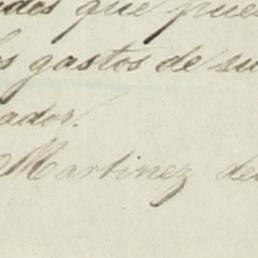 ados que pue
os gastos de su
ador.
Martinez de